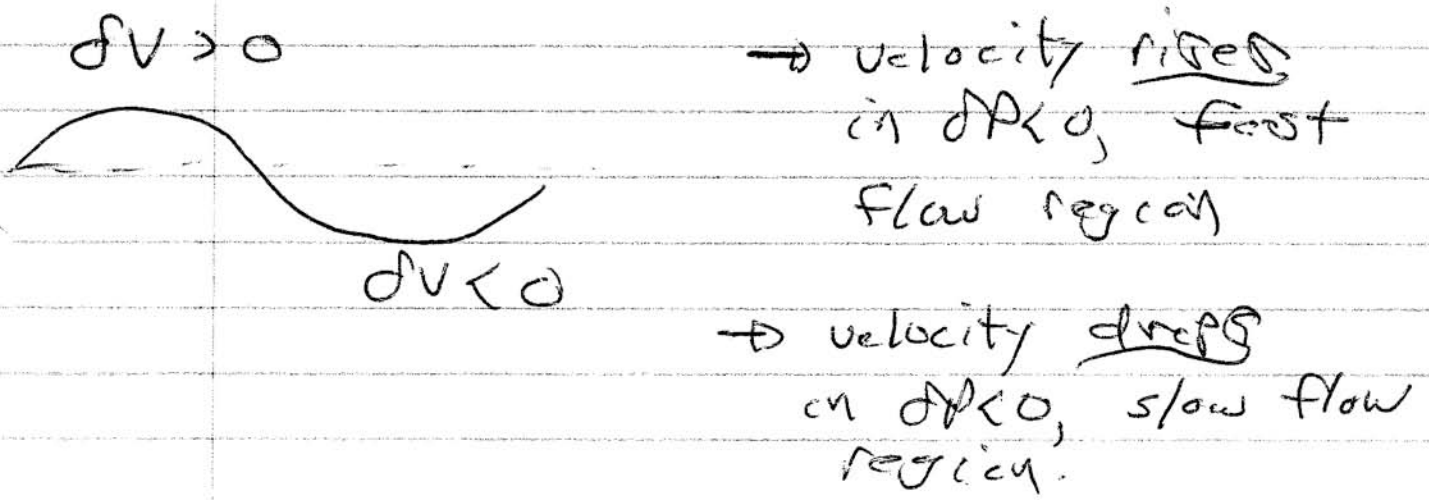 δV > 0
→ velocity rises
in δP < 0, fast
flow region
δV < 0
→ velocity drops
in δP < 0, slow flow
region.